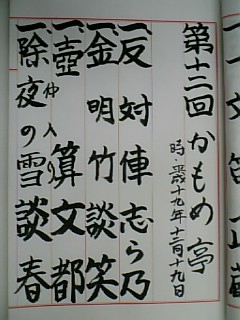 第十三回かもめ亭
時・平成十九年十二月十九日
一、反対俥 志ら乃
一、金明竹 談笑
一、壺算 文都
仲入り
一、除夜の雪 談春